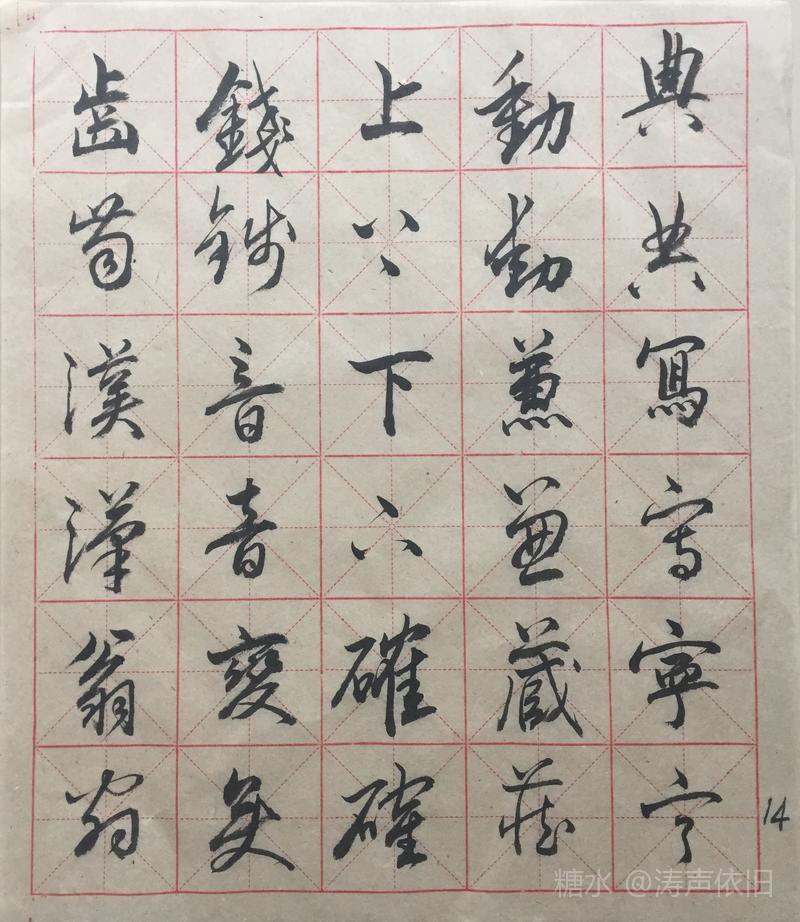 典典寫寫寧寧
動動兼兼藏藏
上上下下確確
錢錢音音變變
齒齒漢漢翁翁
14
糖水 @涛声依旧